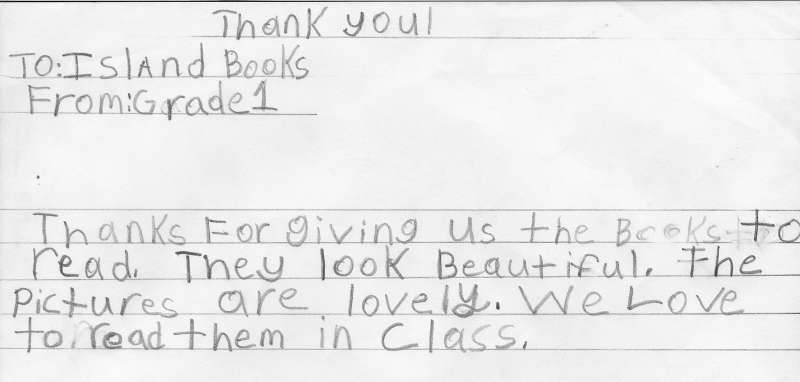 Thank you!
TO: IslAnd Books
From: Grade 1
Thanks For giving us the Books to
read. They look Beautiful. The
Pictures are lovely. We Love
to read them in Class.